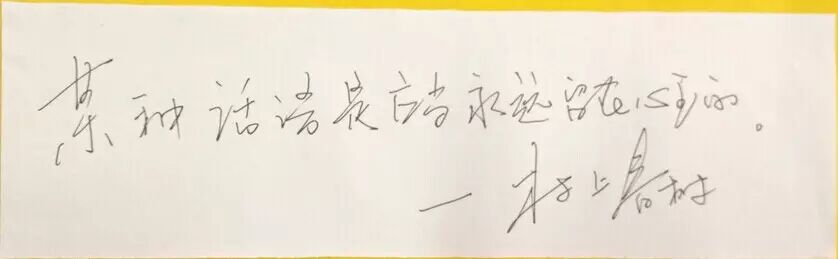 某种话语是应当永远留在心里的。
—村上春树